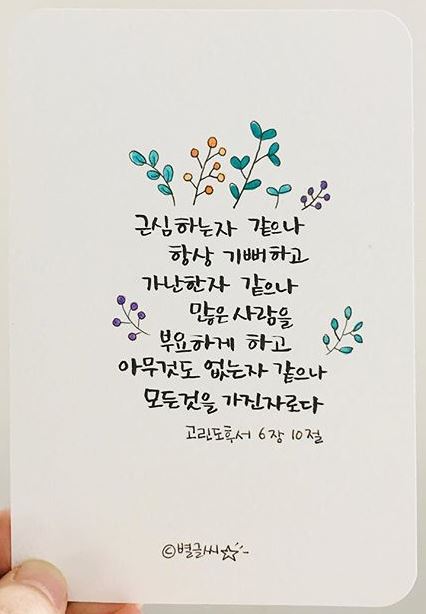 근심하는자 같으나
항상 기뻐하고
가난한자 같으나
많은 사람을
부요하게 하고
아무것도 없는자 같으나
모든것을 가진자로다
고린도후서 6장 10절
©별글씨☆